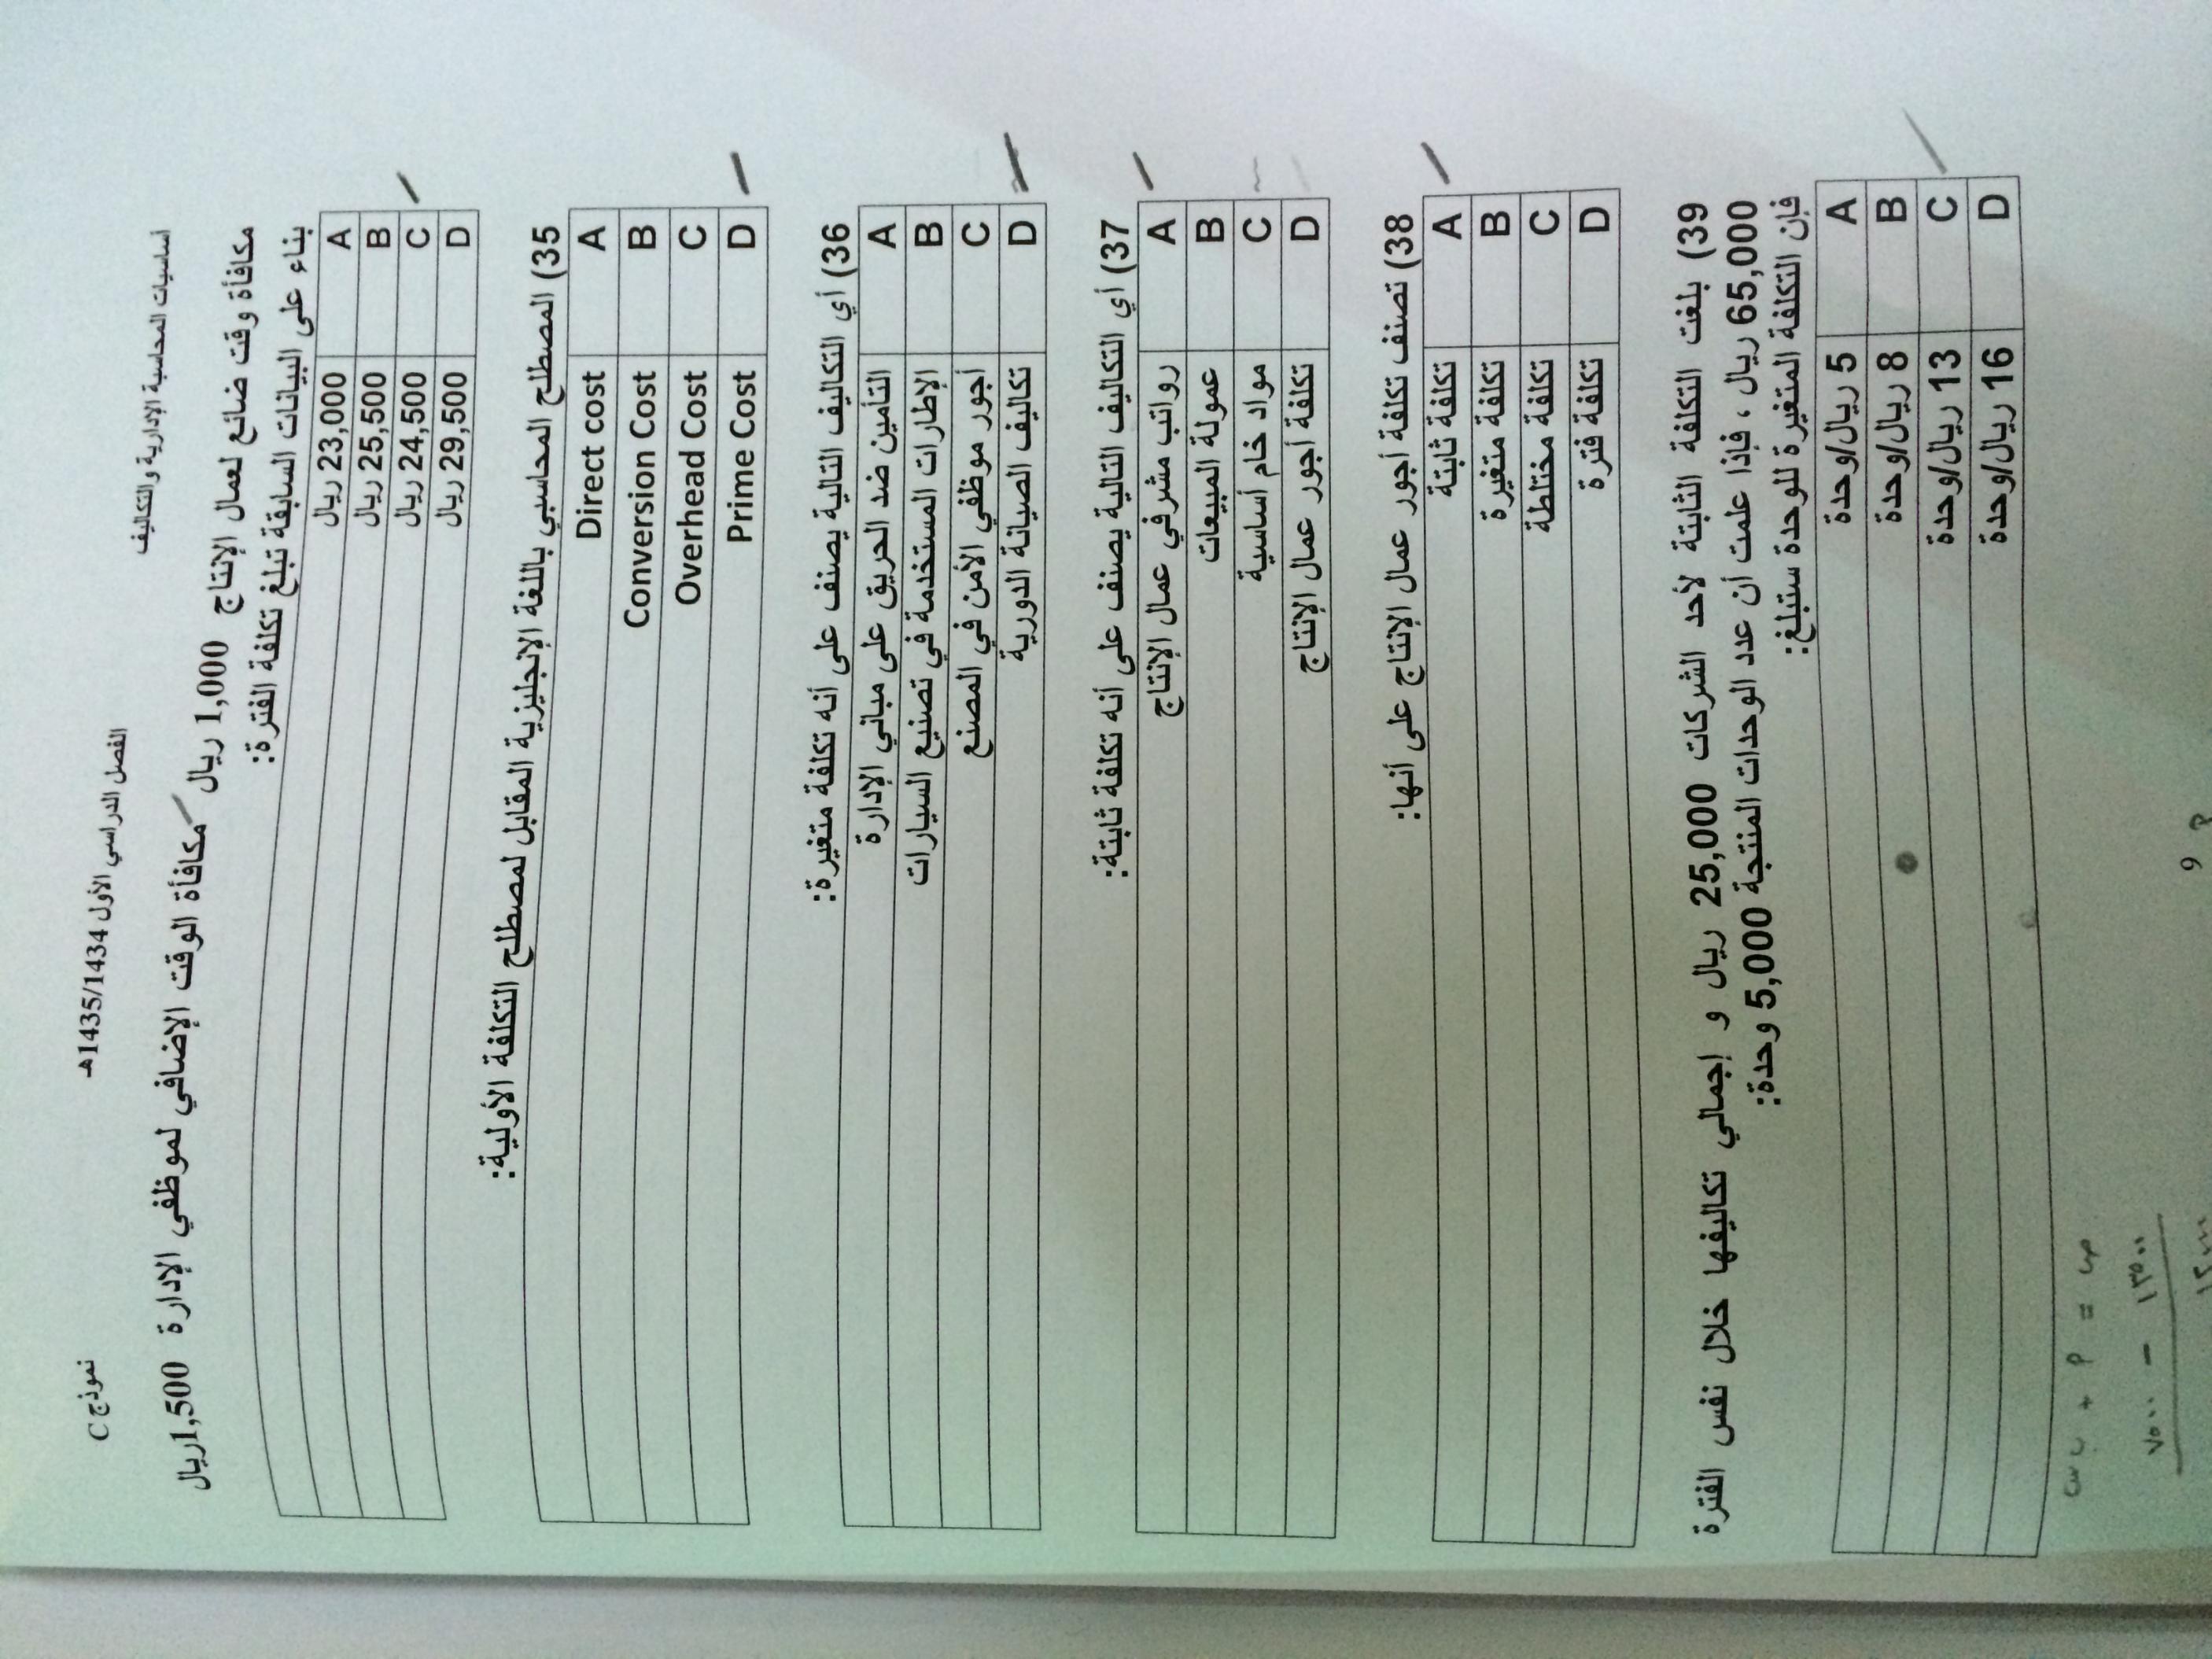 أساسيات المحاسبة الإدارية والتكاليف الفصل الدراسي الأول 1435/1434هـ نموذج C
مكافأة وقت ضائع لعمال الإنتاج 1,000 ريال مكافأة الوقت الإضافي لموظفي الإدارة 1,500ريال
بناء على البيانات السابقة تبلغ تكلفة الفترة:
A 23,000 ريال
B 25,500 ريال
C 24,500 ريال
D 29,500 ريال
35) المصطلح المحاسبي باللغة الإنجليزية المقابل لمصطلح التكلفة الأولية:
A Direct cost
B Conversion Cost
C Overhead Cost
D Prime Cost
36) أي التكاليف التالية يصنف على أنه تكلفة متغيرة:
A التأمين ضد الحريق على مباني الإدارة
B الإطارات المستخدمة في تصنيع السيارات
C أجور موظفي الأمن في المصنع
D تكاليف الصيانة الدورية
37) أي التكاليف التالية يصنف على أنه تكلفة ثابتة:
A رواتب مشرفي عمال الإنتاج
B عمولة المبيعات
C مواد خام أساسية
D تكلفة أجور عمال الإنتاج
38) تصنف تكلفة أجور عمال الإنتاج على أنها:
A تكلفة ثابتة
B تكلفة متغيرة
C تكلفة مختلطة
D تكلفة فترة
39) بلغت التكلفة الثابتة لأحد الشركات 25,000 ريال و إجمالي تكاليفها خلال نفس الفترة
65,000 ريال ، فإذا علمت أن عدد الوحدات المنتجة 5,000 وحدة:
فإن التكلفة المتغيرة للوحدة ستبلغ:
A 5 ريال/وحدة
B 8 ريال/وحدة
C 13 ريال/وحدة
D 16 ريال/وحدة